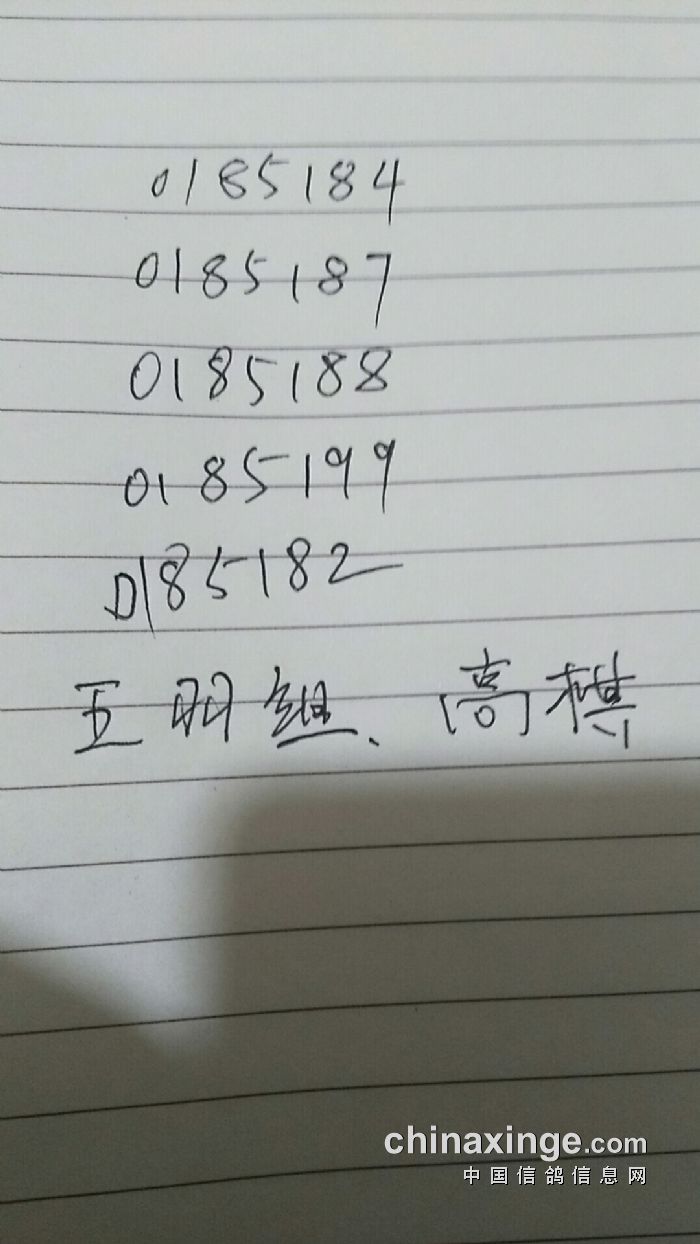 0185184
0185187
0185188
0185199
0185182
五羽组、高棋
chinaxinge.com
中国信鸽信息网